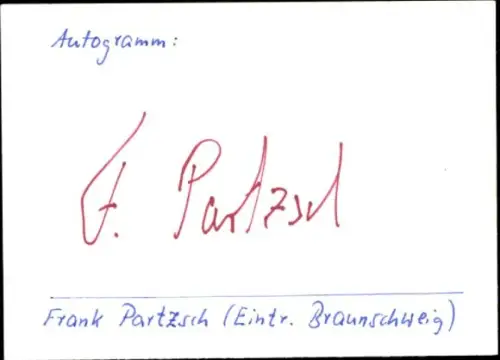 Autogramm:
F. Partzsch
Frank Partzsch (Eintr. Braunschweig)